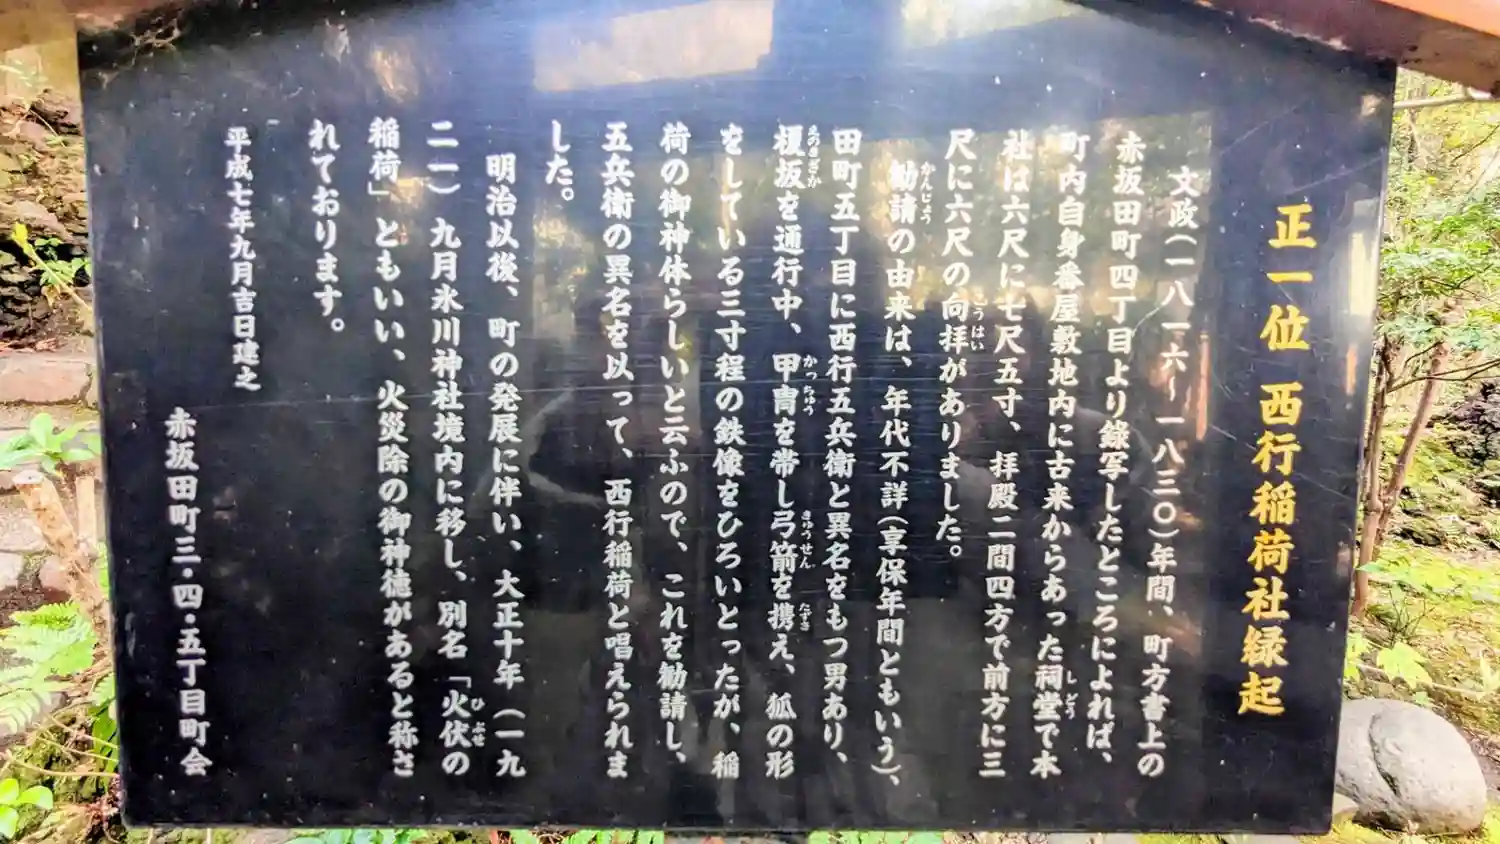 正一位 西行稲荷社縁起
文政(一八一六〜一八三〇)年間、町方書上の
赤坂田町四丁目より録写したところによれば、
町内自身番屋敷地内に古来からあった祠堂で本
社は六尺に七尺五寸、拝殿二間四方で前方に三
尺に六尺の向拝がありました。
勧請の由来は、年代不詳(享保年間ともいう)、
田町五丁目に西行五兵衛と異名をもつ男あり、
榎坂を通行中、甲冑を帯し弓箭を携え、狐の形
をしている三寸程の鉄像をひろいとったが、稲
荷の御神体らしいと云ふので、これを勧請し、
五兵衛の異名を以って、西行稲荷と唱えられま
した。
明治以後、町の発展に伴い、大正十年(一九
二一)九月氷川神社境内に移し、別名「火伏の
稲荷」ともいい、火災除の御神徳があると称さ
れております。
平成七年九月吉日建之
赤坂田町三・四・五丁目町会